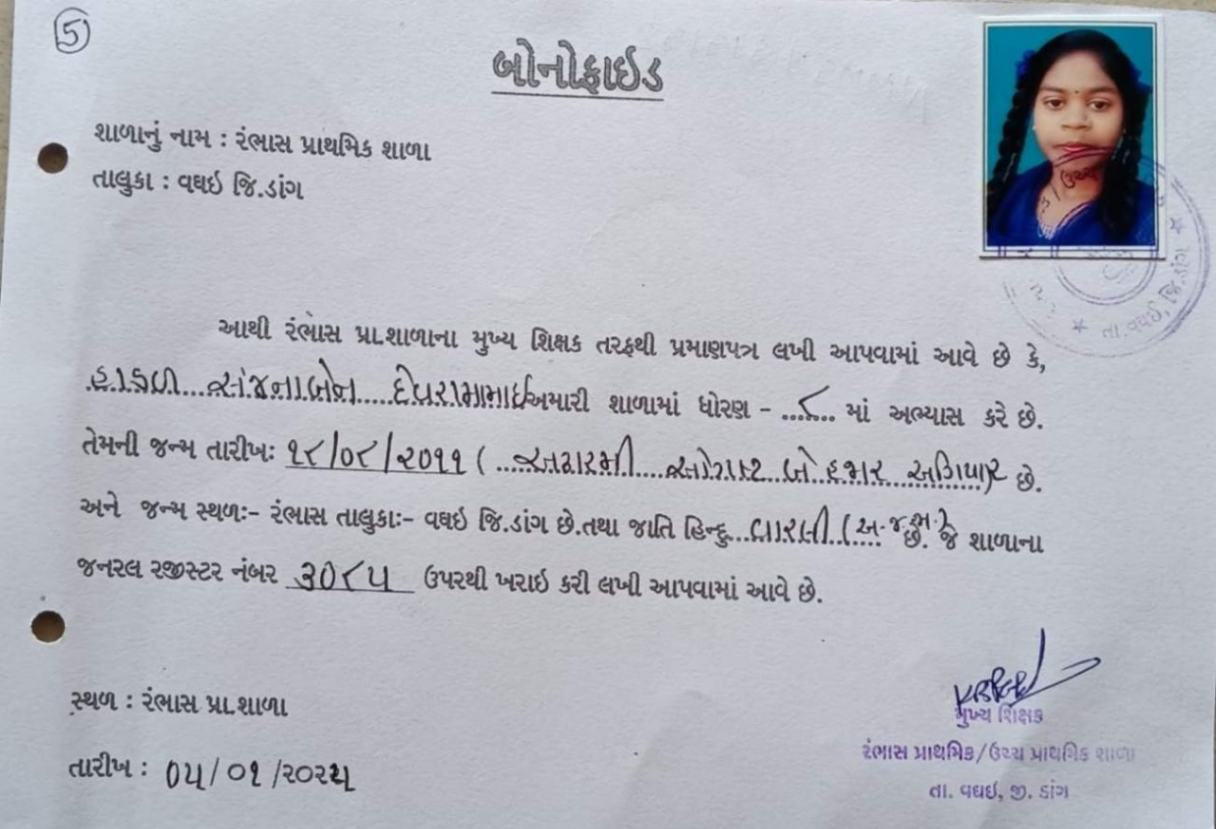 ૫
બોનોફાઇડ
શાળાનું નામ : રંભાસ પ્રાથમિક શાળા
તાલુકા : વઘઇ જિ.ડાંગ
આથી રંભાસ પ્રા.શાળાના મુખ્ય શિક્ષક તરફથી પ્રમાણપત્ર લખી આપવામાં આવે છે કે,
સંજનાબેન.....દેવરામભાઈ અમારી શાળામાં ધોરણ - ...૮... માં અભ્યાસ કરે છે.
તેમની જન્મ તારીખઃ ૧૮/૦૮/૨૦૧૧ ( ...અઢારમી....ઓગષ્ટ બે હજાર અગિયાર) છે.
અને જન્મ સ્થળઃ- રંભાસ તાલુકાઃ- વઘઇ જિ.ડાંગ છે.તથા જાતિ હિન્દુ...વારલી.(અ.જ.જા.) છે. જે શાળાના
જનરલ રજીસ્ટર નંબર ૩૦૮૫ ઉપરથી ખરાઇ કરી લખી આપવામાં આવે છે.
સ્થળ : રંભાસ પ્રા.શાળા
તારીખ : ૦૫/૦૧/૨૦૨૫
મુખ્ય શિક્ષક
રંભાસ પ્રાથમિક/ઉચ્ચ પ્રાથમિક શાળા
તા. વઘઇ, જી. ડાંગ
તા.વઘઇ, જિ.ડાંગ